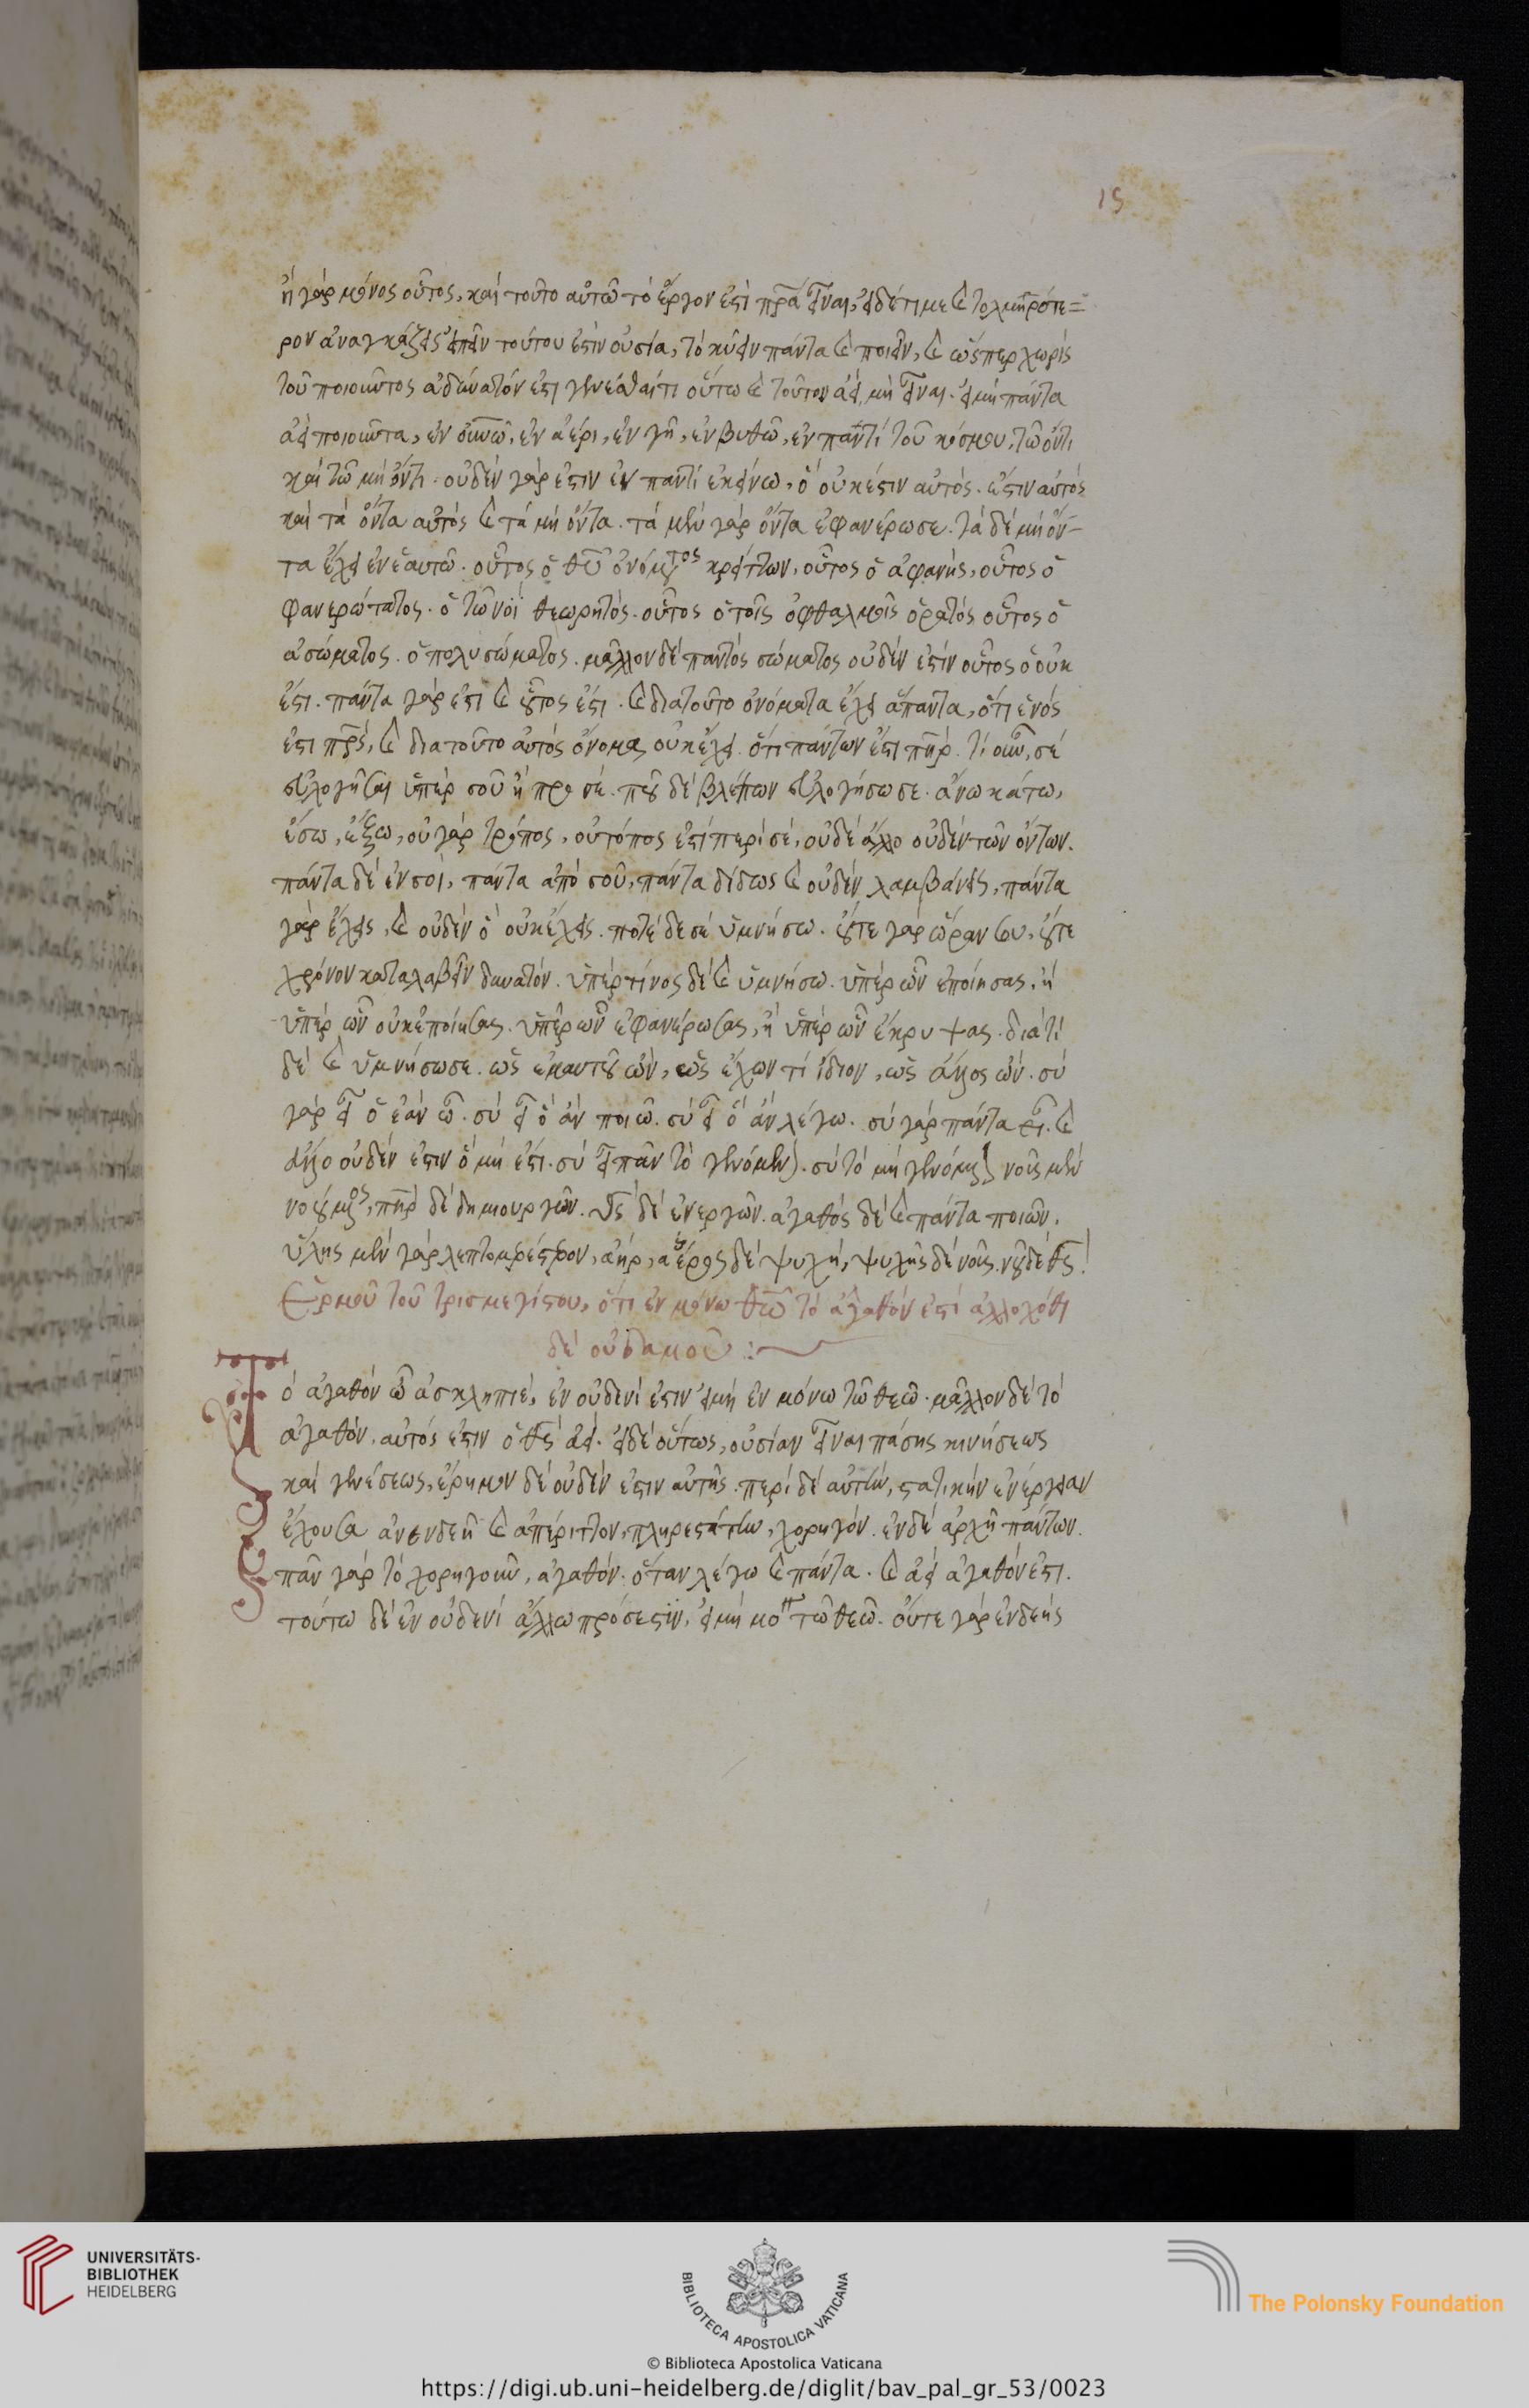 15
ἢ γὰρ μόνος οὗτος, καὶ τοῦτο αὐτῶ τὸ ἔργον ἐστὶ πρ̅α εἶναι, εἰ δέ τι με καὶ τολμηρότε=
ρον ἀναγκάζεις εἰπεῖν τούτου ἐστὶν οὐσία, τὸ κύειν πάντα καὶ ποιεῖν, καὶ ὥσπερ χωρὶς
τοῦ ποιοῦντος ἀδύνατόν ἐστι γενέσθαι τι οὕτω καὶ τοῦτον ἀεὶ, μὴ εἶναι. εἰ μὴ πάντα
ἀεὶ ποιοῦντα, ἐν οὐνῶ, ἐν ἀέρι, ἐν γῆ, ἐν βυθῶ, ἐν παντὶ τοῦ κόσμου, τῶ ὄντι
καὶ τῶ μὴ ὄντι. οὐδὲν γάρ ἐστιν ἐν παντὶ ἐκείνω, ὃ οὐκ ἔστιν αὐτός. ἔστιν αὐτὸς
καὶ τὰ ὄντα αὐτὸς καὶ τὰ μὴ ὄντα. τὰ μὲν γὰρ ὄντα ἐφανέρωσε. τὰ δὲ μὴ ὄν-
τα ἔχει ἐν ἑαυτῶ. οὗτος ὁ θ̅υ ὀνόματος κρείττων, οὗτος ὁ ἀφανής, οὗτος ὁ
φανερώτατος. ὁ τῶ νοῒ θεωρητός. οὗτος ὁ τοῖς ὀφθαλμοῖς ὁρατὸς οὗτος ὁ
ἀσώματος. ὁ πολυσώματος. μᾶλλον δὲ παντὸς σώματος οὐδέν ἐστιν οὗτος ὃ οὐκ
ἔστι. πάντα γάρ ἐστι καὶ οὗτος ἐστι. καὶ διατοῦτο ὀνόματα ἔχει ἅπαντα, ὅτι ἑνός
ἐστι πρ̅ς, καὶ διατοῦτο αὐτὸς ὄνομα οὐκ ἔχει. ὅτι πάντων ἐστὶ πη̅ρ. τί οὖν, σὲ
εὐλογῆσαι ὑπὲρ σοῦ ἢ προ σέ. ποῦ δὲ βλέπων εὐλογήσω σε. ἄνω κάτω,
ἔσω, ἔξω, οὐ γὰρ τρόπος, οὐ τόπος ἐστὶ περὶ σέ, οὐδὲ ἄλλο οὐδὲν τῶν ὄντων.
πάντα δὲ ἐν σοὶ, πάντα ἀπὸ σοῦ, πάντα δίδως καὶ οὐδὲν λαμβάνεις, πάντα
γὰρ ἔχεις, καὶ οὐδὲν ὃ οὐκ ἔχεις. πότε δέ σε ὑμνήσω. οὔτε γὰρ ὥραν σου, οὔτε
χρόνον καταλαβεῖν δυνατόν. ὑπὲρ τίνος δὲ καὶ ὑμνήσω. ὑπὲρ ὧν ἐποίησας, ἢ
ὑπὲρ ὧν οὐκ ἐποίησας. ὑπὲρ ὧν ἐφανέρωσας, ἢ ὑπὲρ ὧν ἔκρυψας. διὰ τί
δὲ καὶ ὑμνήσω σε. ὡς ἐμαυτοῦ ὢν, ὡς ἔχων τὶ ἴδιον, ὡς ἄλλος ὤν. σὺ
γὰρ εἶ ὃ ἐὰν ὦ. σὺ εἶ ὃ ἂν ποιῶ. σὺ εἶ ὃ ἂν λέγω. σὺ γὰρ πάντα εἶ. καὶ
ἄλλο οὐδέν ἐστιν ὃ μὴ ἔστι. σὺ εἶ πᾶν τὸ γενόμενον. σὺ τὸ μὴ γενόμενον νοῦς μὲν
νοούμενος, πη̅ρ δὲ δημιουργῶν. θ̅ς δὲ ἐνεργῶν. ἀγαθὸς δὲ καὶ πάντα ποιῶν.
ὕλης μὲν γὰρ λεπτομερέστερον, ἀήρ, ἀέρος δὲ ψυχή, ψυχῆς δὲ νοῦς. νοῦ δὲ θ̅ς
Ἑρμοῦ τοῦ τρισμεγίστου, ὅτι ἐν μόνω θ̅ω τὸ ἀγαθόν ἐστι ἀλλοχόθι
δὲ οὐδαμοῦ :~
Τὸ ἀγαθὸν ὦ ἀσκληπιέ, ἐν οὐδενί ἐστιν εἰ μὴ ἐν μόνω τῶ θεῶ. μᾶλλον δὲ τὸ
ἀγαθόν, αὐτός ἐστιν ὁ θ̅ς ἀεὶ. εἰ δὲ οὕτως, οὐσίαν εἶναι πάσης κινήσεως
καὶ γενέσεως, ἔρημον δὲ οὐδέν ἐστιν αὐτῆς. περὶ δὲ αὐτὴν, στατικὴν ἐνέργειαν
ἔχουσα ἀνενδεῆ καὶ ἀπέριττον, πληρεστάτην, χορηγόν. ἐν δὲ ἀρχῆ πάντων.
πᾶν γὰρ τὸ χορηγοῦν, ἀγαθόν. ὅταν λέγω καὶ πάντα. καὶ ἀεὶ ἀγαθόν ἐστι.
τούτω δὲ ἐν οὐδενὶ ἄλλω πρόσεστιν, εἰ μὴ μο τῶ θεῶ. οὔτε γὰρ ἐνδεής
UNIVERSITÄTS-
BIBLIOTHEK
HEIDELBERG
BIBLIOTECA APOSTOLICA VATICANA
The Polonsky Foundation
© Biblioteca Apostolica Vaticana
https://digi.ub.uni-heidelberg.de/diglit/bav_pal_gr_53/0023